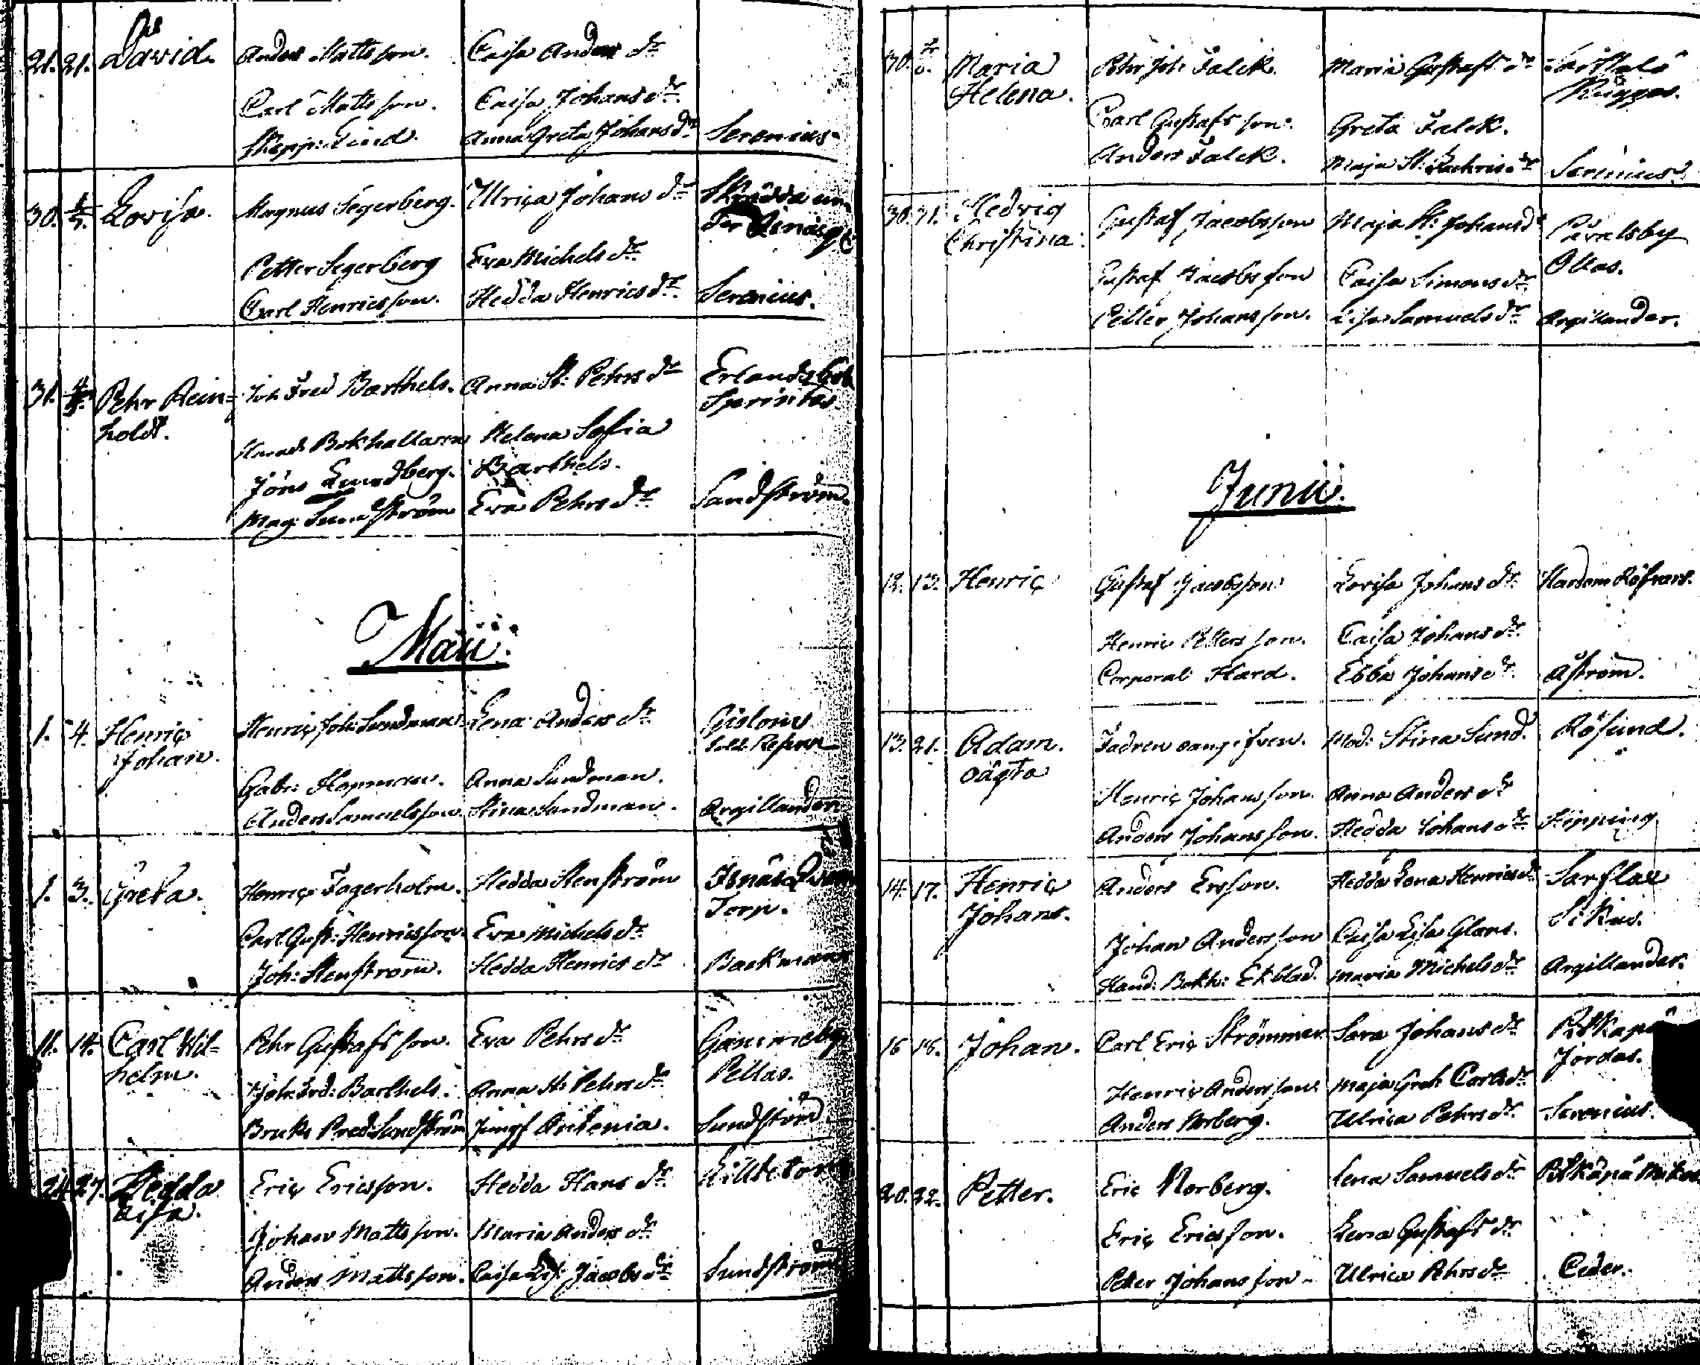 21. 21. David. Anders Mattsson. Caisa Anders dr
Carl Mattsson. Caisa Johans dr
Skepp: Lind. Anna Greta Johans dr Serenius.
30. Lovisa. Magnus Segerberg. Ulrica Johans dr
Petter Segerberg Eva Michels dr
Carl Henricsson. Hedda Henrics dr Serenius.
31. Pehr Rein= Joh Fred Barthels. Anna St: Pehrs dr
holdt. Helena Sofia
Jöns Lundberg. Barthels.
Mag: Sundström Eva Pehrs dr Sandström.
Maii.
1. 4. Henric Henric Joh: Sundman Lena Anders dr
Johan.
Gabr: Anna Sundman.
Anders Samuelsson Stina Sundman. Argillander
1. 3. Greta. Henric Fagerholm. Hedda Stenström
Torp.
Carl Gust: Henricsson. Eva Michels dr
Joh: Stenström. Hedda Henrics dr Backman
11. 14. Carl Wil= Pehr Gustafsson. Eva Pehrs dr Gammelby
helm. Pellas.
Joh: Frd: Barthels. Anna St: Pehrs dr
Bruks Pred Sundström Jungf Sundström
24 27. Hedda Eric Ericsson. Hedda Hans dr
Johan Mattsson. Maria Anders dr
Anders Mattsson. Caisa Jacobs dr Sundström
30. Maria Pehr Joh: Falck. Maria Gustafs dr
Helena.
Carl Gustafsson. Greta Falck.
Anders Falck. Maja St: Zachris dr Serenius.
30. 31. Hedvig Gustaf Jacobsson Maja St: Johans dr
Christina. Gustaf Jacobsson Caisa Simons dr
Petter Johansson. Lisa Samuels dr Argillander.
Junii.
12. 13. Henric Gustaf Jacobsson Lovisa Johans dr
Henric Pettersson. Caisa Johans dr
Corporal Hard. Ebba Johans dr Åström.
13. 21. Adam. Fadren Mod: Stina Sund. Rösund.
oägta
Henric Johansson. Anna Anders dr
Anders Johansson. Hedda Johans dr Hipping
14. 17. Henric Anders Ersson. Hedda Lena Henrics dr Sarflax
Johan. Johan Andersson Caisa Lisa Glans.
Hand: Bokh: Ekblad. Maria Michels dr Argillander.
16 18. Johan. Carl Eric Strömmer Sara Johans dr
Jordas.
Henric Andersson Maja Gret: Carls dr
Anders Norberg. Ulrica Pehrs dr Serenius.
20. 22. Petter. Eric Norberg. Lena Samuels dr
Eric Ericsson. Lena Gustafs dr
Petter Johansson Ulrica Pehrs dr Ceder.